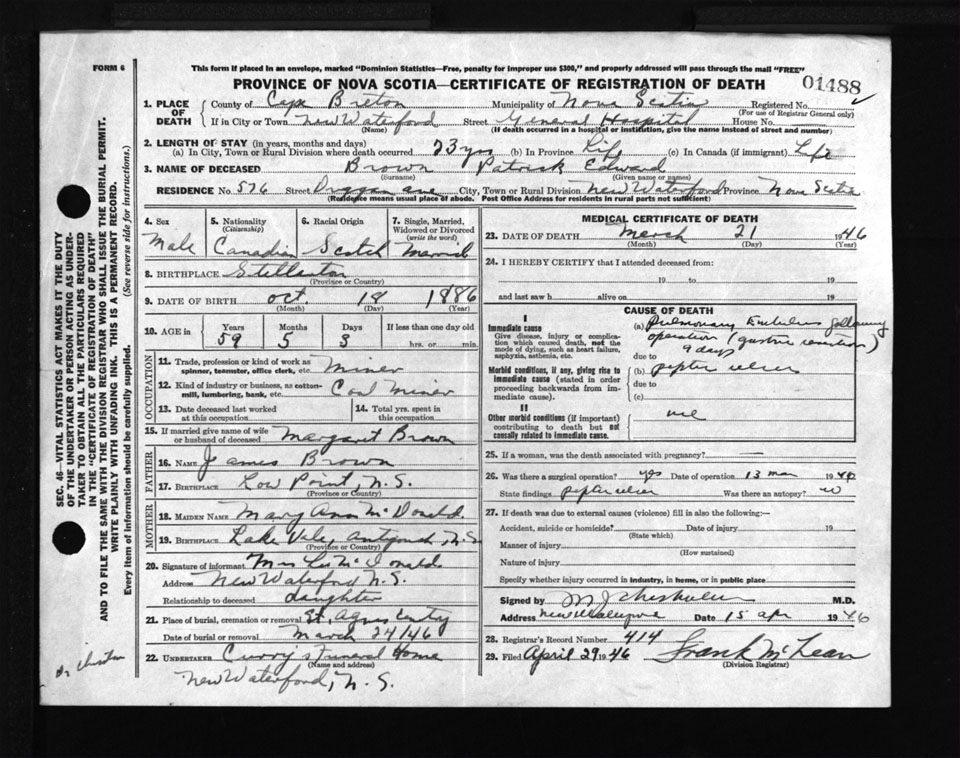 FORM 6
This form if placed in an envelope, marked "Dominion Statistics—Free, penalty for improper use $300," and properly addressed will pass through the mail "FREE"
PROVINCE OF NOVA SCOTIA—CERTIFICATE OF REGISTRATION OF DEATH
01488
1. PLACE OF DEATH County of Cape Breton Municipality of Nova Scotia Registered No.
(For use of Registrar General only)
If in City or Town New Waterford Street General Hospital House No.
(Name) (If death occurred in a hospital or institution, give the name instead of street and number)
2. LENGTH OF STAY (in years, months and days)
(a) In City, Town or Rural Division where death occurred 23 yrs (b) In Province Life (c) In Canada (if immigrant) Life
3. NAME OF DECEASED Brown Patrick Edward
(Surname) (Given name or names)
RESIDENCE No. 526 Street Duggan ave City, Town or Rural Division New Waterford Province Nova Scotia
(Residence means usual place of abode. Post Office Address for residents in rural parts not sufficient)
4. Sex 5. Nationality 6. Racial Origin 7. Single, Married, Widowed or Divorced
(Citizenship) (write the word)
Male Canadian Scotch Married
8. BIRTHPLACE Stellarton
(Province or Country)
9. DATE OF BIRTH Oct. 18 1886
(Month) (Day) (Year)
10. AGE in Years Months Days If less than one day old
59 5 3 hrs. or min.
OCCUPATION
11. Trade, profession or kind of work as spinner, teamster, office clerk, etc. Miner
12. Kind of industry or business, as cotton-mill, lumbering, bank, etc. Coal Miner
13. Date deceased last worked at this occupation
14. Total yrs. spent in this occupation
15. If married give name of wife or husband of deceased Margaret Brown
FATHER
16. NAME James Brown
17. BIRTHPLACE Low Point, N.S.
(Province or Country)
MOTHER
18. MAIDEN NAME Mary Ann McDonald
19. BIRTHPLACE Lake Vale, Antigonish, N.S.
(Province or Country)
20. Signature of informant Mrs McDonald
Address New Waterford N.S.
Relationship to deceased daughter
21. Place of burial, cremation or removal St. Agnes
Date of burial or removal March 24/46
22. UNDERTAKER Curry's Funeral Home
(Name and address)
New Waterford, N.S.
MEDICAL CERTIFICATE OF DEATH
23. DATE OF DEATH March 21 1946
(Month) (Day) (Year)
24. I HEREBY CERTIFY that I attended deceased from:
19 to 19
and last saw h alive on 19
CAUSE OF DEATH
I
Immediate cause
Give disease, injury or complication which caused death, not the mode of dying, such as heart failure, asphyxia, asthenia, etc.
(a) Pulmonary Embolus following
operation (gastric resection)
9 days
due to
Morbid conditions, if any, giving rise to immediate cause (stated in order proceeding backwards from immediate cause).
(b) peptic ulcer
due to
(c)
II
Other morbid conditions (if important) contributing to death but not causally related to immediate cause.
25. If a woman, was the death associated with pregnancy? —
26. Was there a surgical operation? yes Date of operation 13 mar 1946
State findings peptic ulcer Was there an autopsy? no
27. If death was due to external causes (violence) fill in also the following:—
Accident, suicide or homicide? Date of injury 19
(State which)
Manner of injury
(How sustained)
Nature of injury
Specify whether injury occurred in industry, in home, or in public place
Signed by M.D.
Address New Waterford Date 15 apr 1946
28. Registrar's Record Number 414
29. Filed April 29 1946 Frank McLean
(Division Registrar)
SEC. 46—VITAL STATISTICS ACT MAKES IT THE DUTY
OF THE UNDERTAKER OR PERSON ACTING AS UNDER-
TAKER TO OBTAIN ALL THE PARTICULARS REQUIRED
IN THE "CERTIFICATE OF REGISTRATION OF DEATH"
AND TO FILE THE SAME WITH THE DIVISION REGISTRAR WHO SHALL ISSUE THE BURIAL PERMIT.
WRITE PLAINLY WITH UNFADING INK. THIS IS A PERMANENT RECORD.
Every item of information should be carefully supplied. (See reverse side for instructions.)